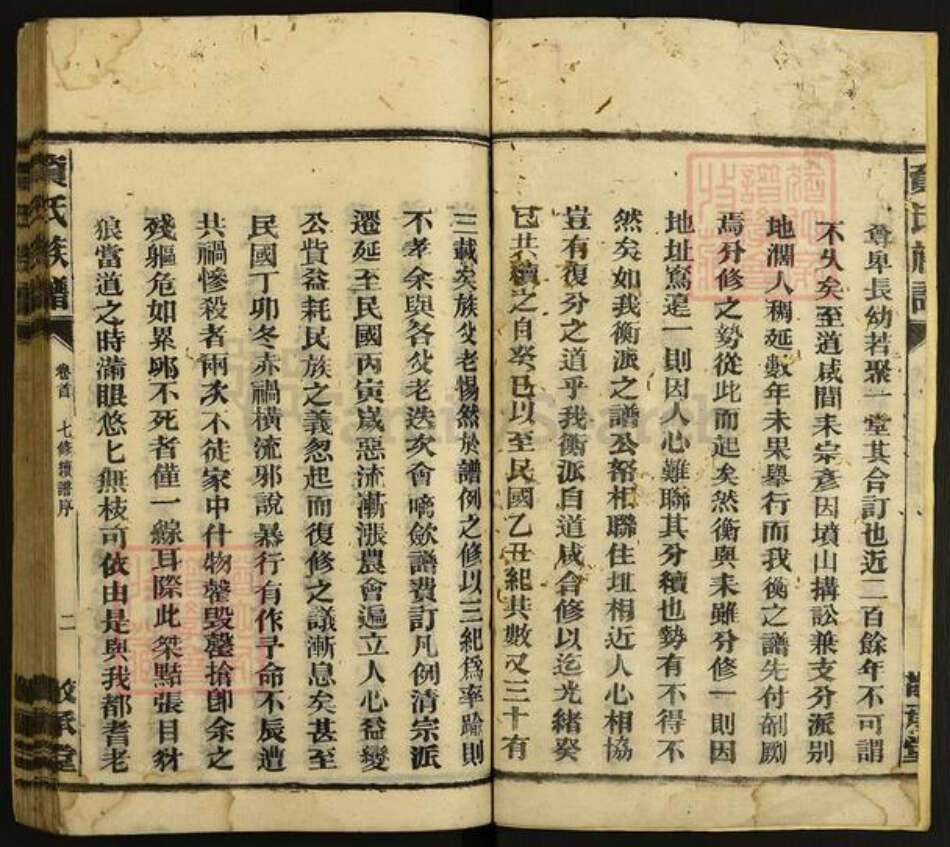 尊卑長幼若聚一堂其合訂也近二百餘年不可謂
不久矣至道咸間耒宗彥因墳山搆訟兼支分派别
地濶人稠延數年未果舉行而我衡之譜先付剞劂
焉分修之勢從此而起矣然衡與耒雖分修一則因
地址寫遠一則因人心難聯其分續也勢有不得不
然矣如我衡派之譜公帑相聯住址相近人心相協
豈有復分之道乎我衡派自道咸合修以迄光緒癸
巳共續之自癸巳以至民國乙丑紀其數又三十有
三載矣族父老惕然於譜例之修以三紀爲率踰則
不孝余與各父老迭次會啇歛譜費訂凡例清宗派
遷延至民國丙寅歲惡流漸漲農會遍立人心益變
公貲益耗民族之義忽起而復修之議漸息矣甚至
民國丁卯冬赤禍橫流邪說暴行有作予命不辰遭
共禍慘殺者兩次不徒家中什物罄毀罄搶卽余之
殘軀危如累卵不死者僅一線耳際此桀點張目豺
狼當道之時滿眼悠匕無枝可依由是與我都耆老
氏族譜
卷首
七修續譜序
二
堂